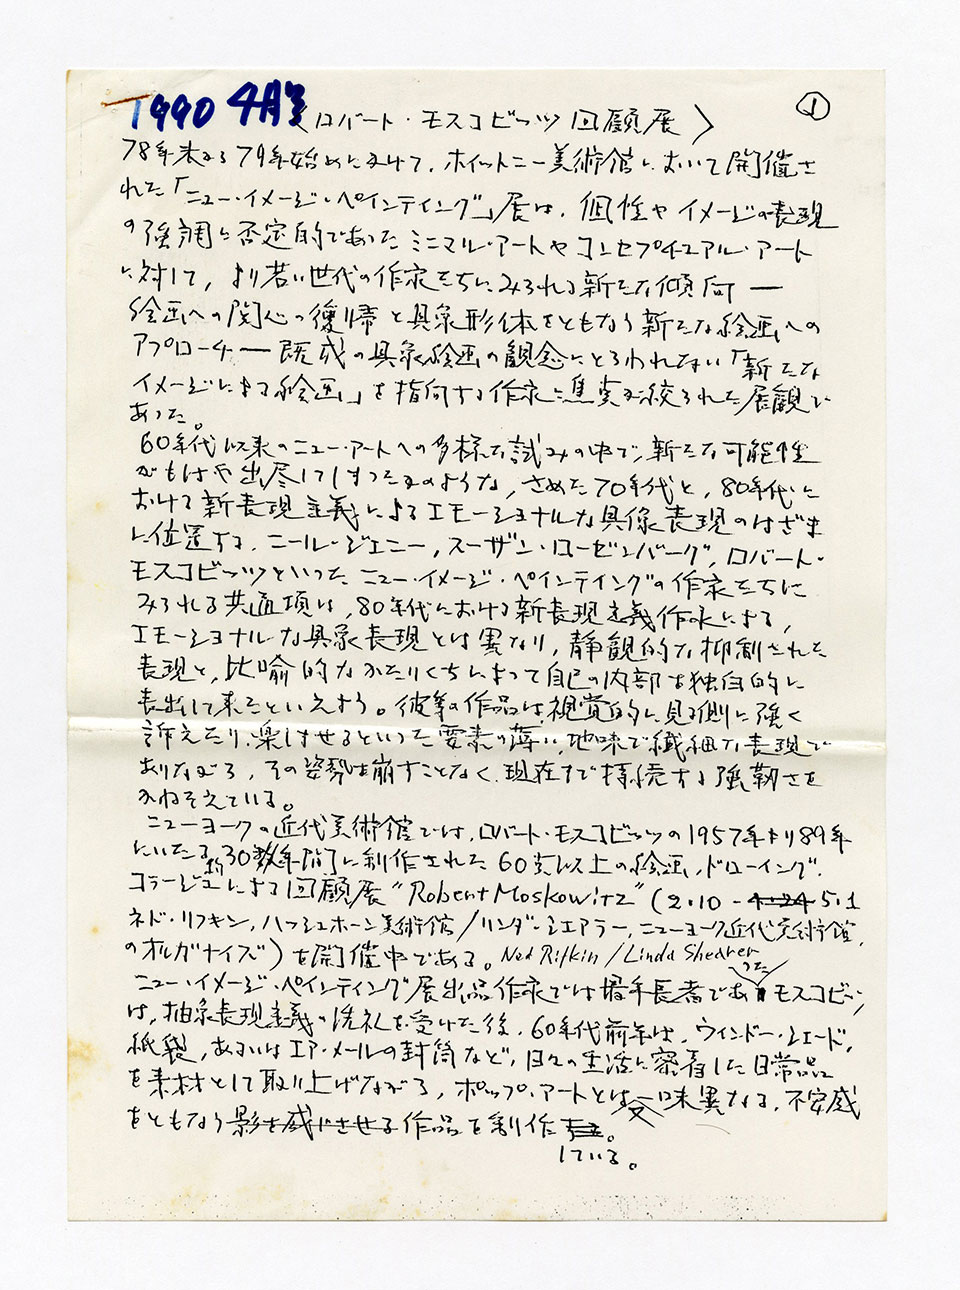 1990 4月号 〈ロバート・モスコビッツ回顧展〉 ①
78年末から79年始めにかけて、ホイットニー美術館において開催さ
れた「ニュー・イメージ・ペインティング」展は、個性やイメージの表現
の強調に否定的であったミニマル・アートやコンセプチュアル・アート
に対して、より若い世代の作家たちにみられる新たな傾向 ―
絵画への関心の復帰と具象形体をともなう新たな絵画への
アプローチ ― 既成の具象絵画の観念にとらわれない「新たな
イメージによる絵画」を指向する作家に焦点が絞られた展観で
あった。
60年代以来のニュー・アートへの多様な試みの中で、新たな可能性
がもはや出尽してしまったかのような、さめた70年代と、80年代に
おける新表現主義によるエモーショナルな具像表現のはざま
に位置する、ニール・ジェニー、スーザン・ローゼンバーグ、ロバート・
モスコビッツといったニュー・イメージ・ペインティングの作家たちに
みられる共通項は、80年代における新表現主義作家による、
エモーショナルな具象表現とは異なり、静観的な抑制された
表現と、比喩的なかたりくちによって自己の内部を独白的に
表出して来たといえよう。彼等の作品は、視覚的に見る側に強く
訴えたり、楽しませるといった要素の薄い、地味で繊細な表現で
ありながら、その姿勢を崩すことなく、現在まで持続する強靭さを
かねそえている。
ニューヨークの近代美術館では、ロバート・モスコビッツの1957年より89年
にいたる、約30数年間に制作された60点以上の絵画、ドローイング、
コラージュによる回顧展 “Robert Moskowitz” (2・10 - 4・24 5・1
ネド・リフキン、ハッシュホーン美術館/リンダ・シエアラー、ニューヨーク近代美術館、
のオルガナイズ)を開催中である。Ned Rifkin / Linda Shearer
ニュー・イメージ・ペインティング展出品作家では最年長者であったモスコビッツ
は、抽象表現主義の洗礼を受けた後、60年代前半は、ウィンドー・シェード、
紙袋、あるいはエア・メールの封筒など、日々の生活に密着した日常品
を素材として取り上げながら、ポップ・アートとは一味異なる、不安感
をともなう影を感じさせる作品を制作する。
している。